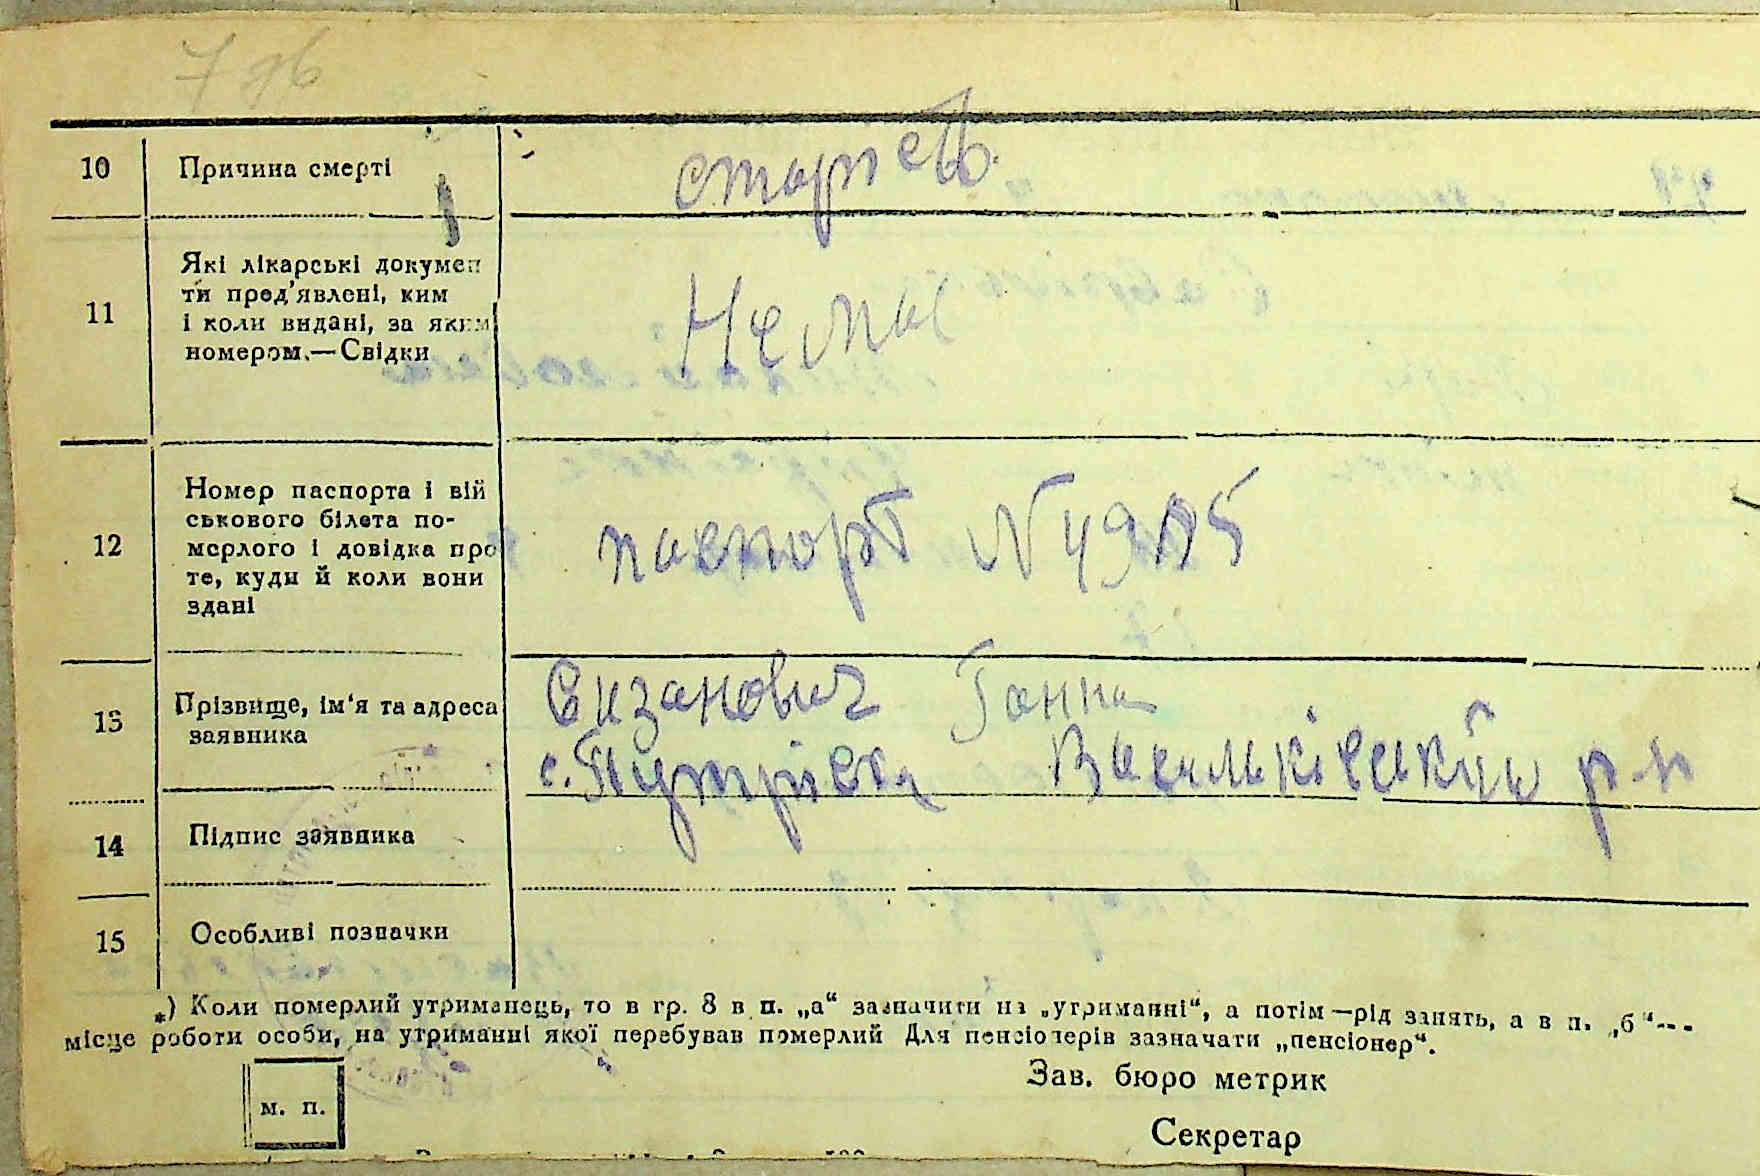 10 Причина смерті старість
11 Які лікарські докумен
ти пред'явлені, ким
і коли видані, за яким
номером.—Свідки
Нема
12 Номер паспорта і вій
ськового білета по-
мерлого і довідка про
те, куди й коли вони
здані
паспорт N
13 Прізвище, ім'я та адреса
заявника
Сизанович Ганна
с. Путрівка Васильківський р-н
14 Підпис заявника
15 Особливі позначки
*) Коли померлий утриманець, то в гр. 8 в п. „а“ зазначити на „утриманні“, а потім—рід занять, а в п. „б“---
місце роботи особи, на утриманні якої перебував померлий Для пенсіонерів зазначати „пенсіонер“.
м. п.
Зав. бюро метрик
Секретар